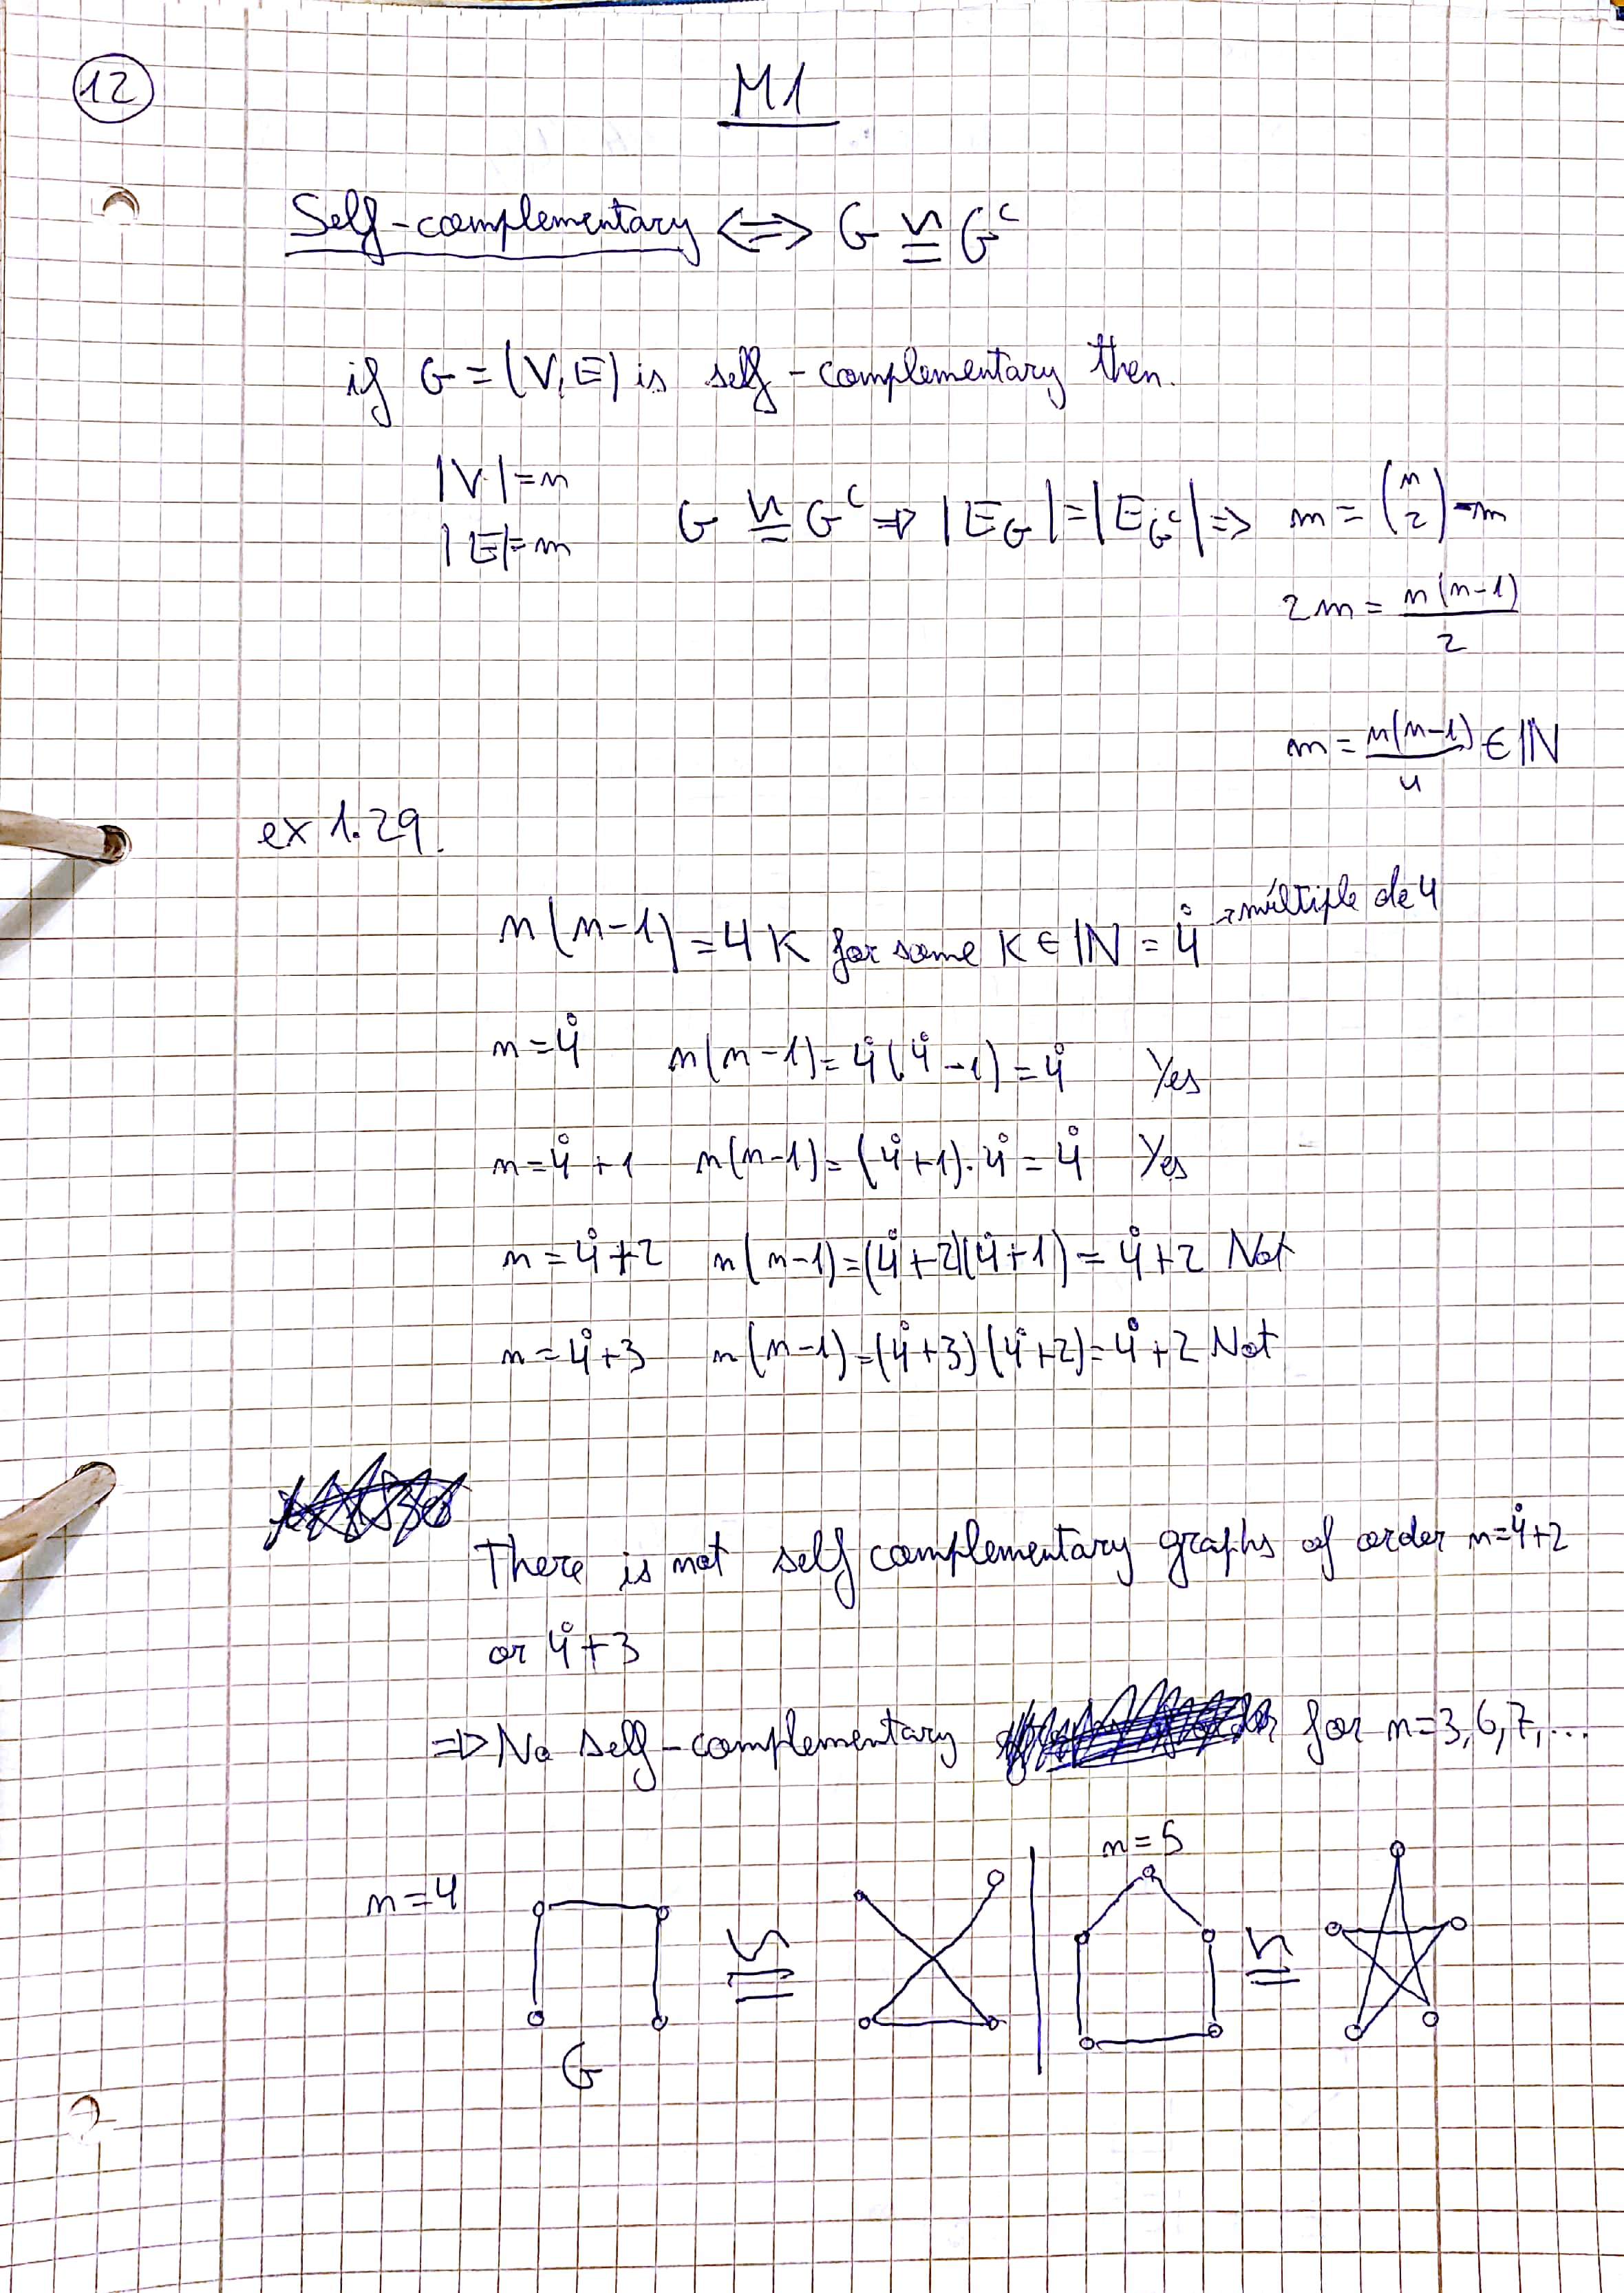 12
M1
Self-complementary ⟺ G ≅ G^c
if G = (V, E) is self-complementary then.
|V| = n
|E| = m
G ≅ G^c ⇒ |E_G| = |E_{G^c}| ⇒ m = \binom{n}{2} - m
2m = \frac{n(n-1)}{2}
m = \frac{n(n-1)}{4} ∈ ℕ
ex 1.29.
n(n-1) = 4K for some K ∈ ℕ = 4̊ → múltiple de 4
n = 4̊ n(n-1) = 4̊(4̊-1) = 4̊ Yes
n = 4̊+1 n(n-1) = (4̊+1)·4̊ = 4̊ Yes
n = 4̊+2 n(n-1) = (4̊+2)(4̊+1) = 4̊+2 Not
n = 4̊+3 n(n-1) = (4̊+3)(4̊+2) = 4̊+2 Not
There is not self complementary graphs of order n=4̊+2
or 4̊+3
⇒ No self-complementary for n=3,6,7,...
n=4 ≅ n=5 ≅
G